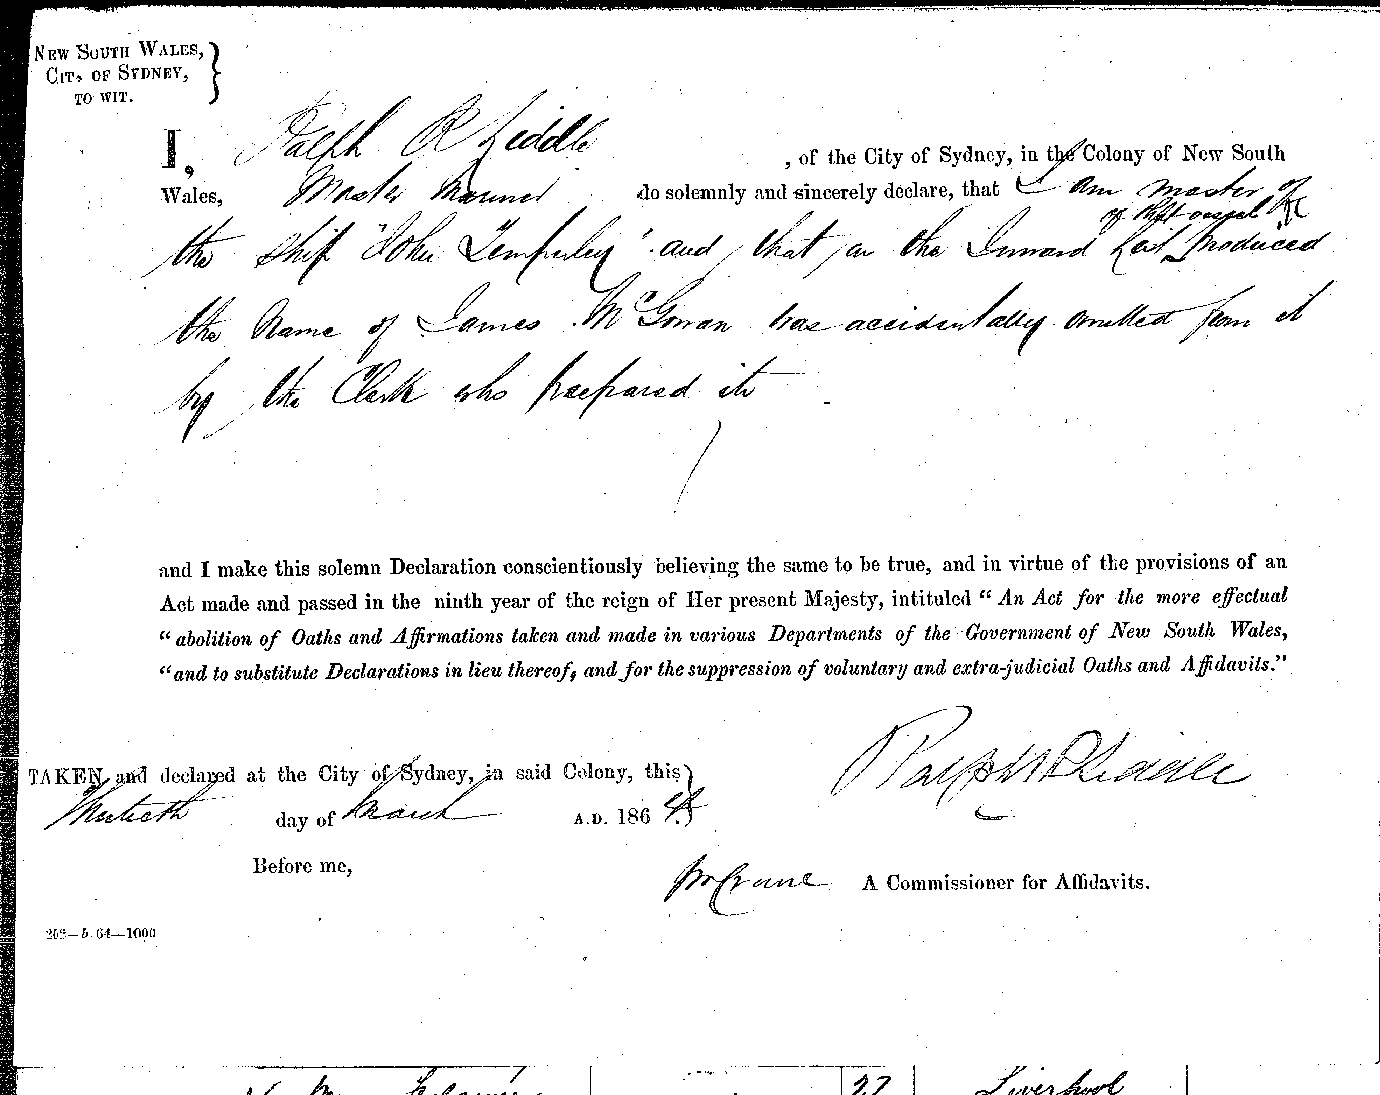 NEW SOUTH WALES,
CITY OF SYDNEY,
TO WIT.
I, Ralph R Liddle , of the City of Sydney, in the Colony of New South
Wales, Master Mariner do solemnly and sincerely declare, that I am master of
of that vessel
the ship "John Temperley" and that in the Inward List produced
the Name of James McGowan was accidentally omitted from it
by the Clerk who prepared it
and I make this solemn Declaration conscientiously believing the same to be true, and in virtue of the provisions of an
Act made and passed in the ninth year of the reign of Her present Majesty, intituled "An Act for the more effectual
"abolition of Oaths and Affirmations taken and made in various Departments of the Government of New South Wales,
"and to substitute Declarations in lieu thereof, and for the suppression of voluntary and extra-judicial Oaths and Affidavits."
Ralph R Liddle
TAKEN and declared at the City of Sydney, in said Colony, this
Thirtieth day of March A.D. 186
Before me,
A Commissioner for Affidavits.
—5.64—1000
27 Liverpool